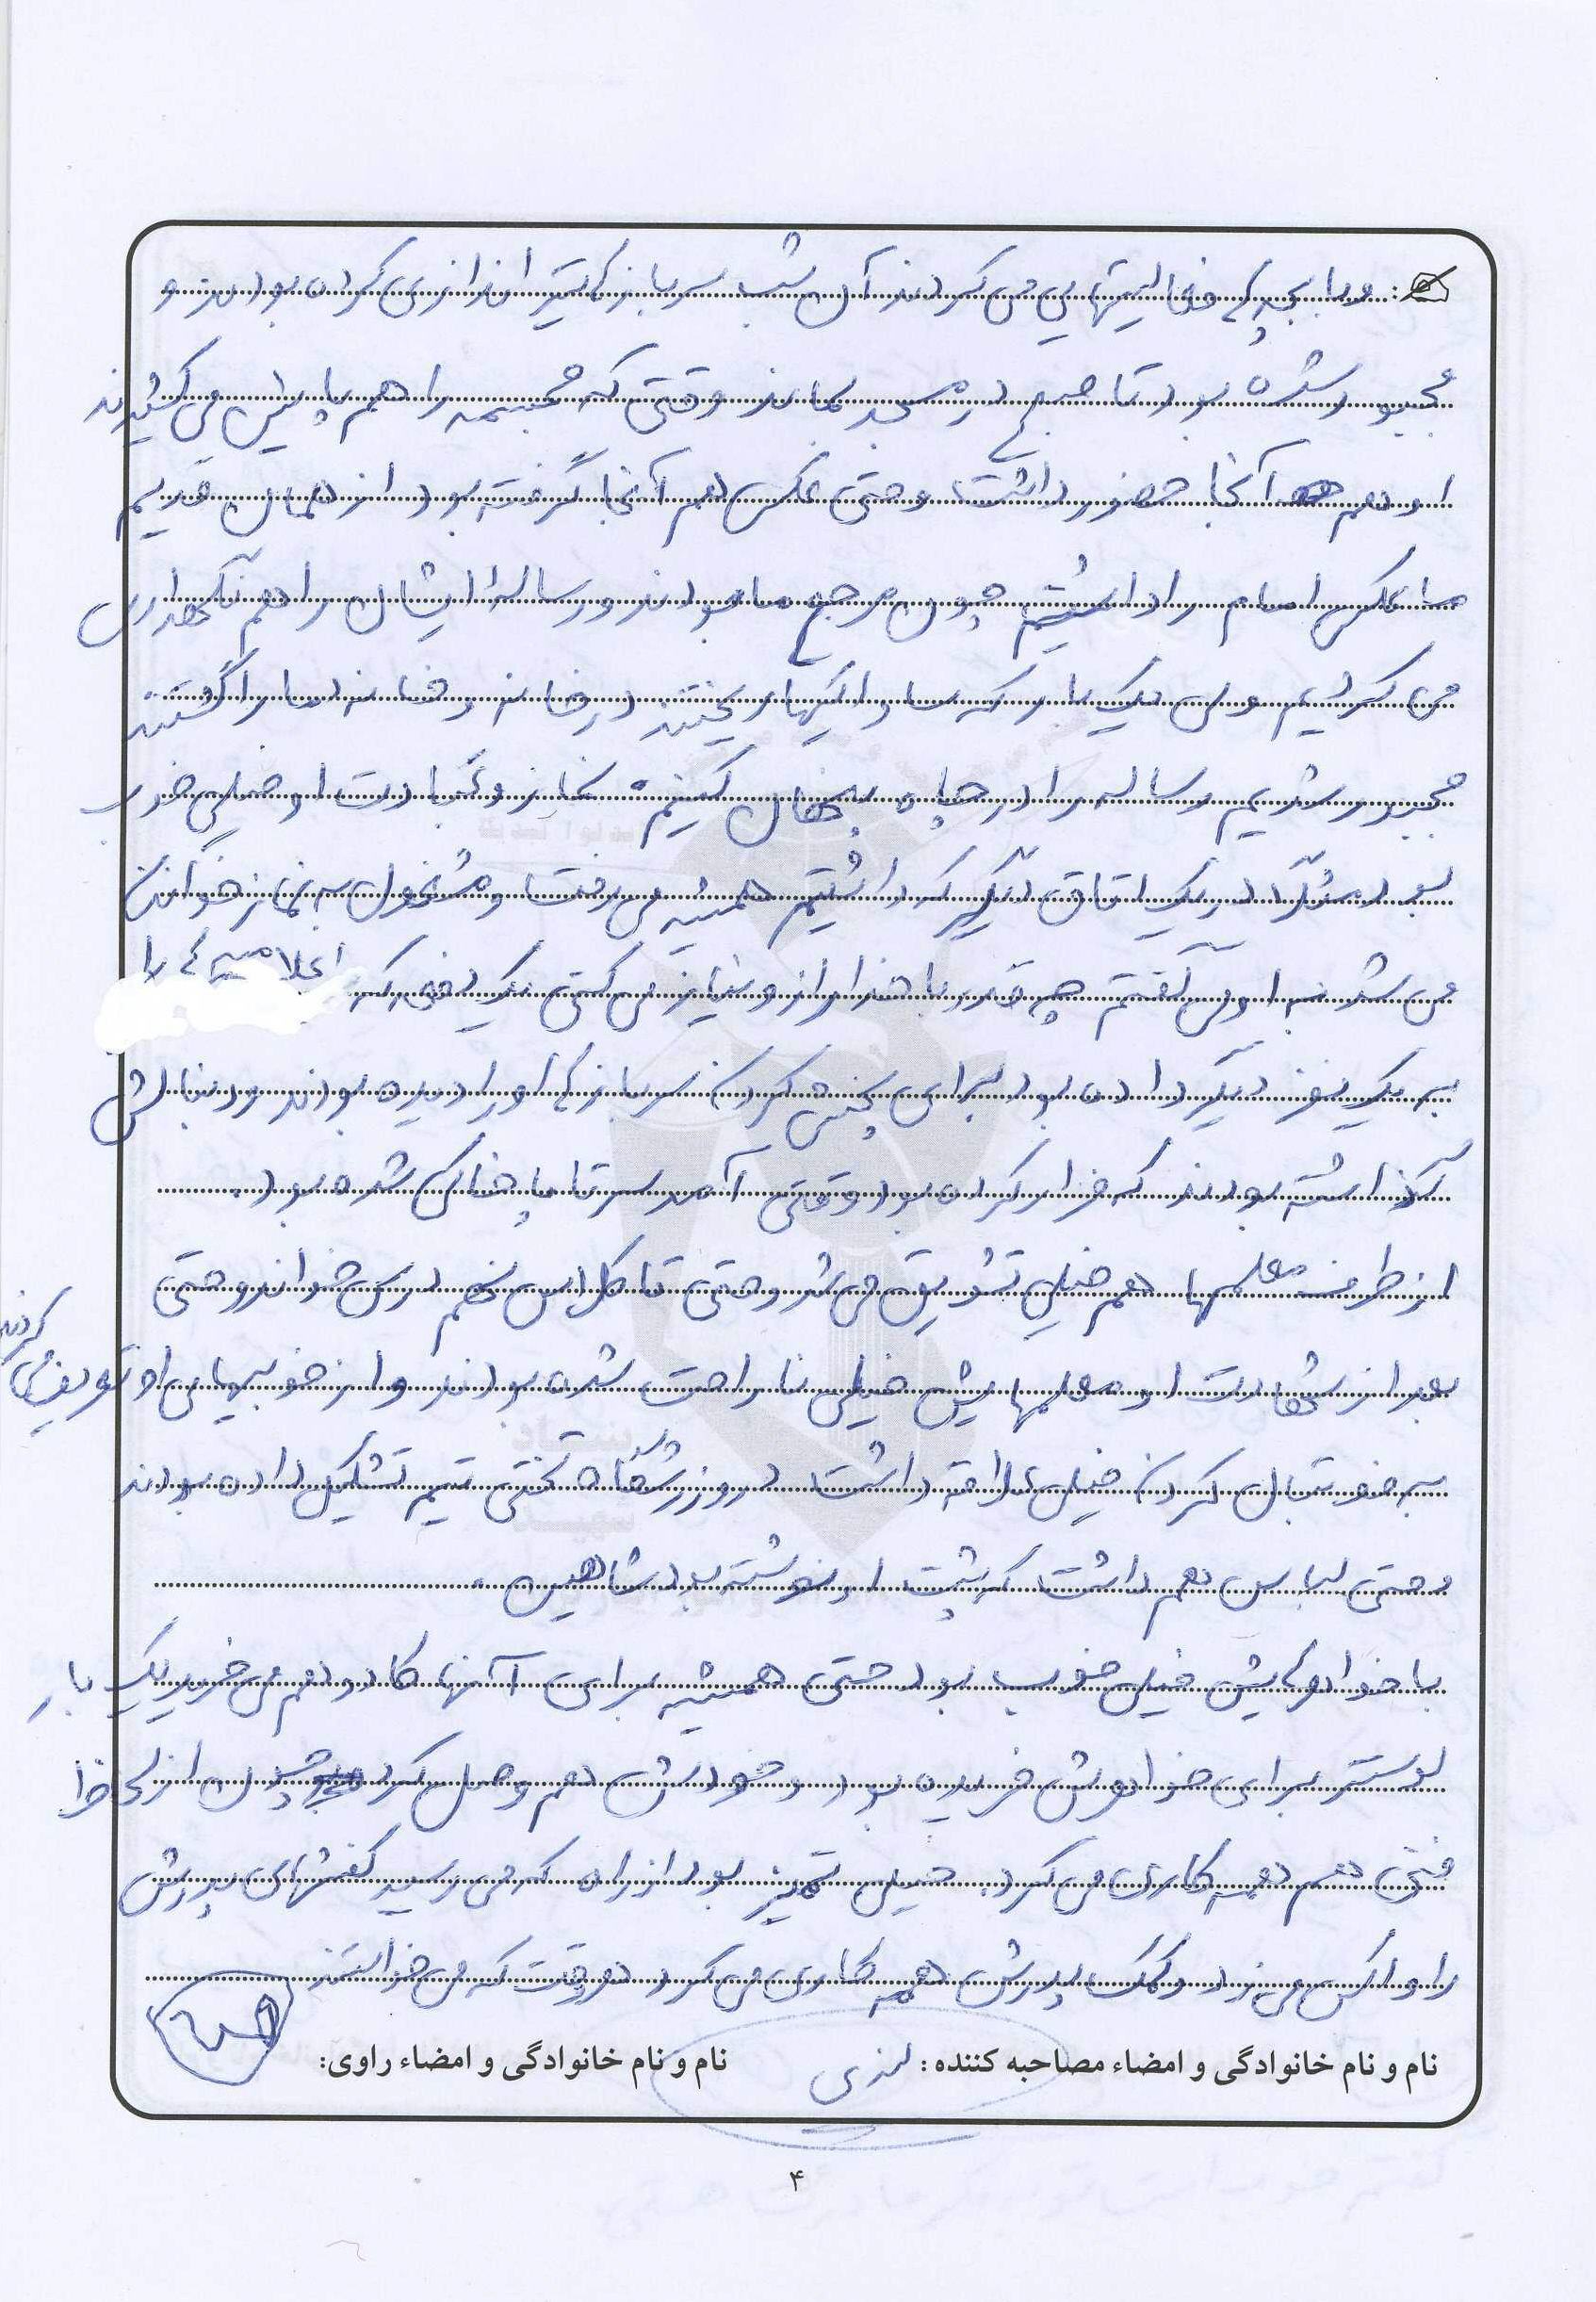 : وبا بچه ها فعالیتهایی می کردند آن شب سربازها تیراندازی کرده بودند و
مجبور شده بود تا صبح در مسجد بماند وقتی که مجسمه را هم پایین می کشیدند
او هم آنجا حضور داشت و حتی عکس هم آنجا گرفته بود از همان قدیم
ما عکس امام را داشتیم چون مرجع ما بودند و رساله ایشان را هم نگهداری
می کردیم ولی یک بار که ساواکیها ریختند در خانه و خانه ما را گشتند
مجبور شدیم رساله را در چاه پنهان کنیم نماز و عبادت او خیلی خوب
بود مثلاً در یک اتاق دیگر که داشتیم همیشه می رفت و مشغول به نماز خواندن
می شد به او می گفتم چه قدر با خدا راز و نیاز می کنی یک دفعه که اعلامیه ها را
به یک نفر دیگر داده بود برای پخش کردن سربازها او را دیده بودند و دنبالش
گذاشته بودند که فرار کرده بود وقتی آمد سر تا پا خاکی شده بود.
از طرف معلمها هم خیلی تشویق می شد و حتی تا کلاس نهم درس خواند و حتی
بعد از شهادت او معلمهایش خیلی ناراحت شده بودند و از خوبیهای او تعریف می کردند
به فوتبال کردن خیلی علاقه داشت در ورزشگاه تختی تیم تشکیل داده بودند
و حتی لباس هم داشت که پشت او نوشته بود شاهین.
با خواهرهایش خیلی خوب بود حتی همیشه برای آنها کادو هم می خرید یک بار
لوستر برای خواهرش خریده بود و خودش هم وصل کرد چون از لحاظ
فنی هم همه کاری می کرد. خیلی تمیز بود از راه که می رسید کفشهای پدرش
را واکس می زد و کمک پدرش همه کاری می کرد هر وقت که می خواستند
نام و نام خانوادگی و امضاء مصاحبه کننده :
نام و نام خانوادگی و امضاء راوی:
۴